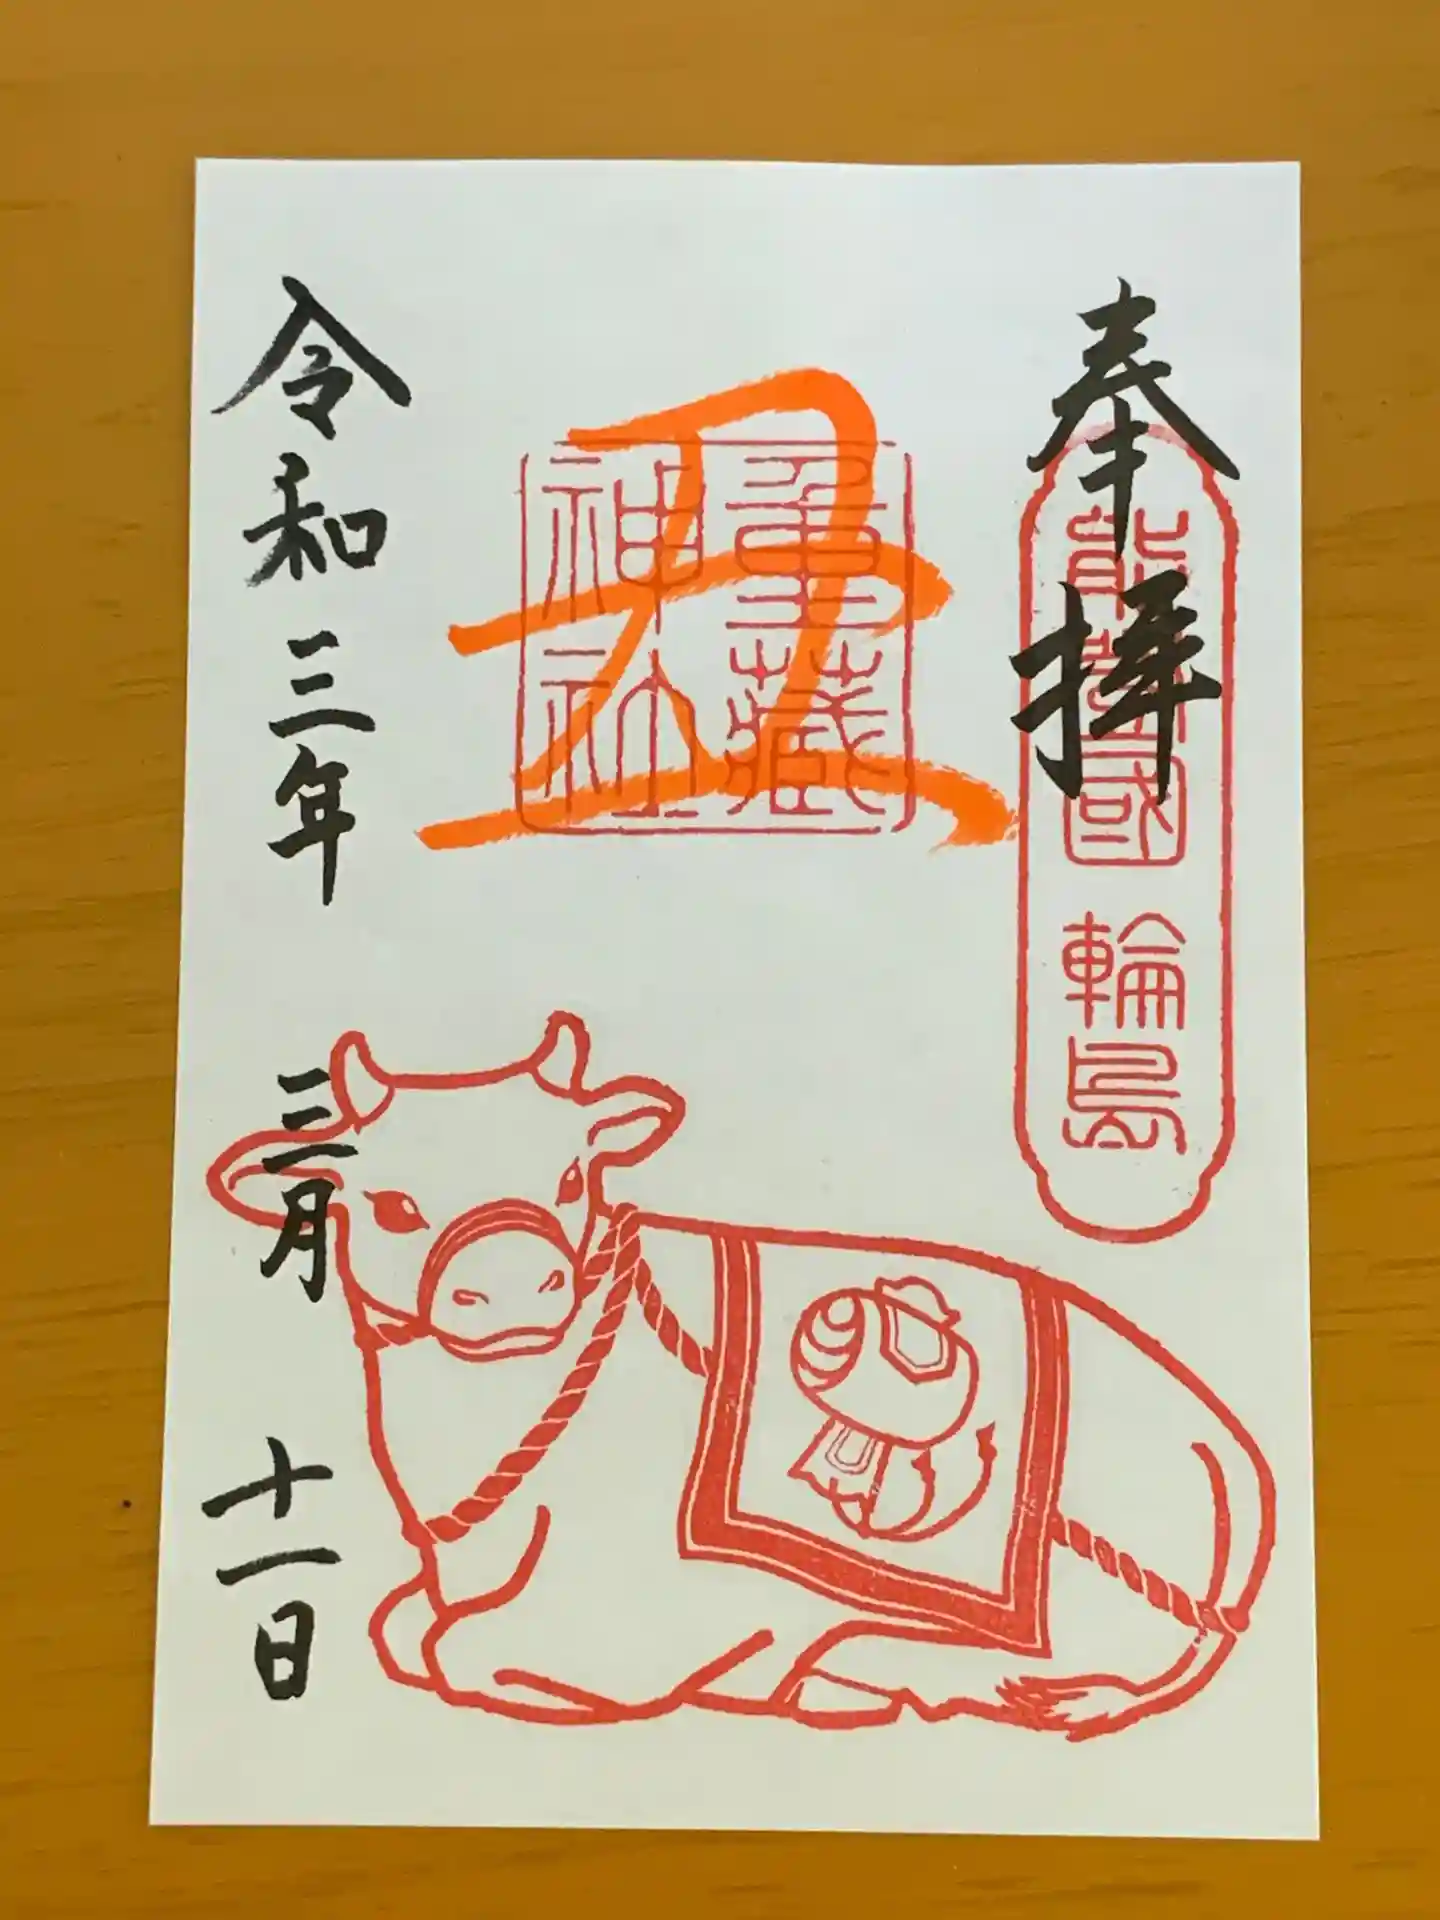 奉拝
能登國 輪島
丑
重藏
神社
令和三年 三月 十一日